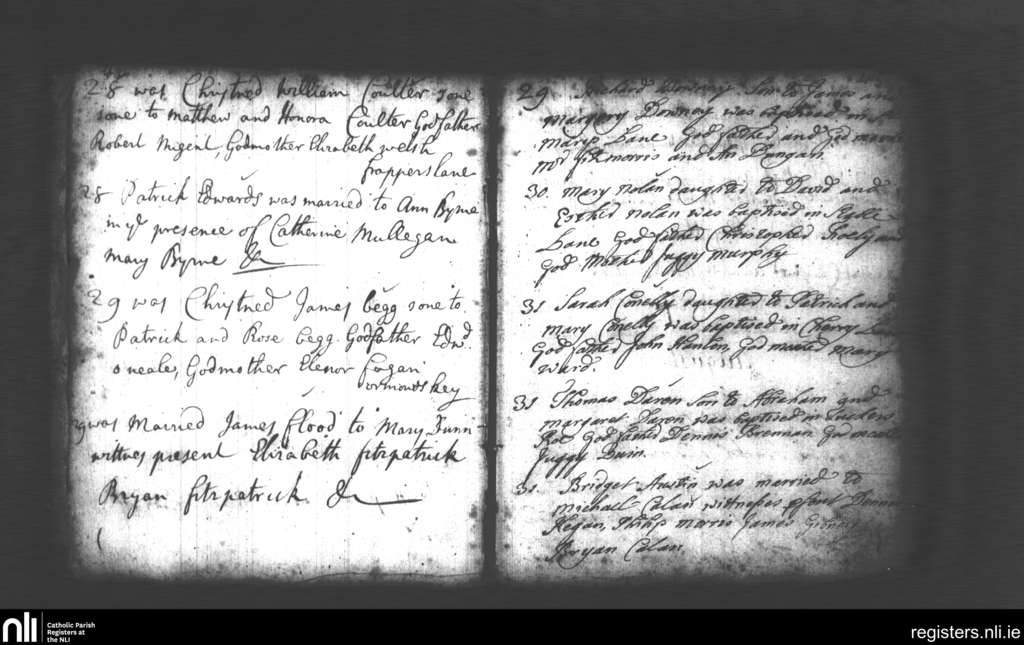 28 was Christned William Coulter sone
sone to Matthew and Honora Coulter Godfather
Robert Nugent, Godmother Elizabeth welsh
frappers lane
28 Patrick Edwards was married to Ann Byrne
in ye presence of Catherine Mullegan
Mary Byrne &c
29 was Christned James Begg sone to
Patrick and Rose Begg. Godfather Edwd
oneale, Godmother Elenor fagan
ormonds key
29 was Married James flood to Mary Dunn
wittnes present Elizabeth fitzpatrick
Bryan fitzpatrick &c
29 Richard Downey Son to James and
margery Downey was baptised in
marys Lane God father and God
mr fitzmorris and An Dungan
30. Mary nolan daughter to David and
Nolan was baptised in
Lane God father Christopher
God Mother Juggy murphy
31 Sarah Conelly daughter to Patrick and
mary Conelly was baptised in Cherry Lane
God father John Hanlon, God mother Mary
ward.
31 Thomas Son to Abraham and
margaret was baptised in Tuckers
Row God father Dennis Brennan God
Juggy Quin.
31 Bridget Austin was married to
michall Calan wittneses psent
Regan, Philip morris James
Bryan Calan.
nli
Catholic Parish
Registers at
the NLI
registers.nli.ie